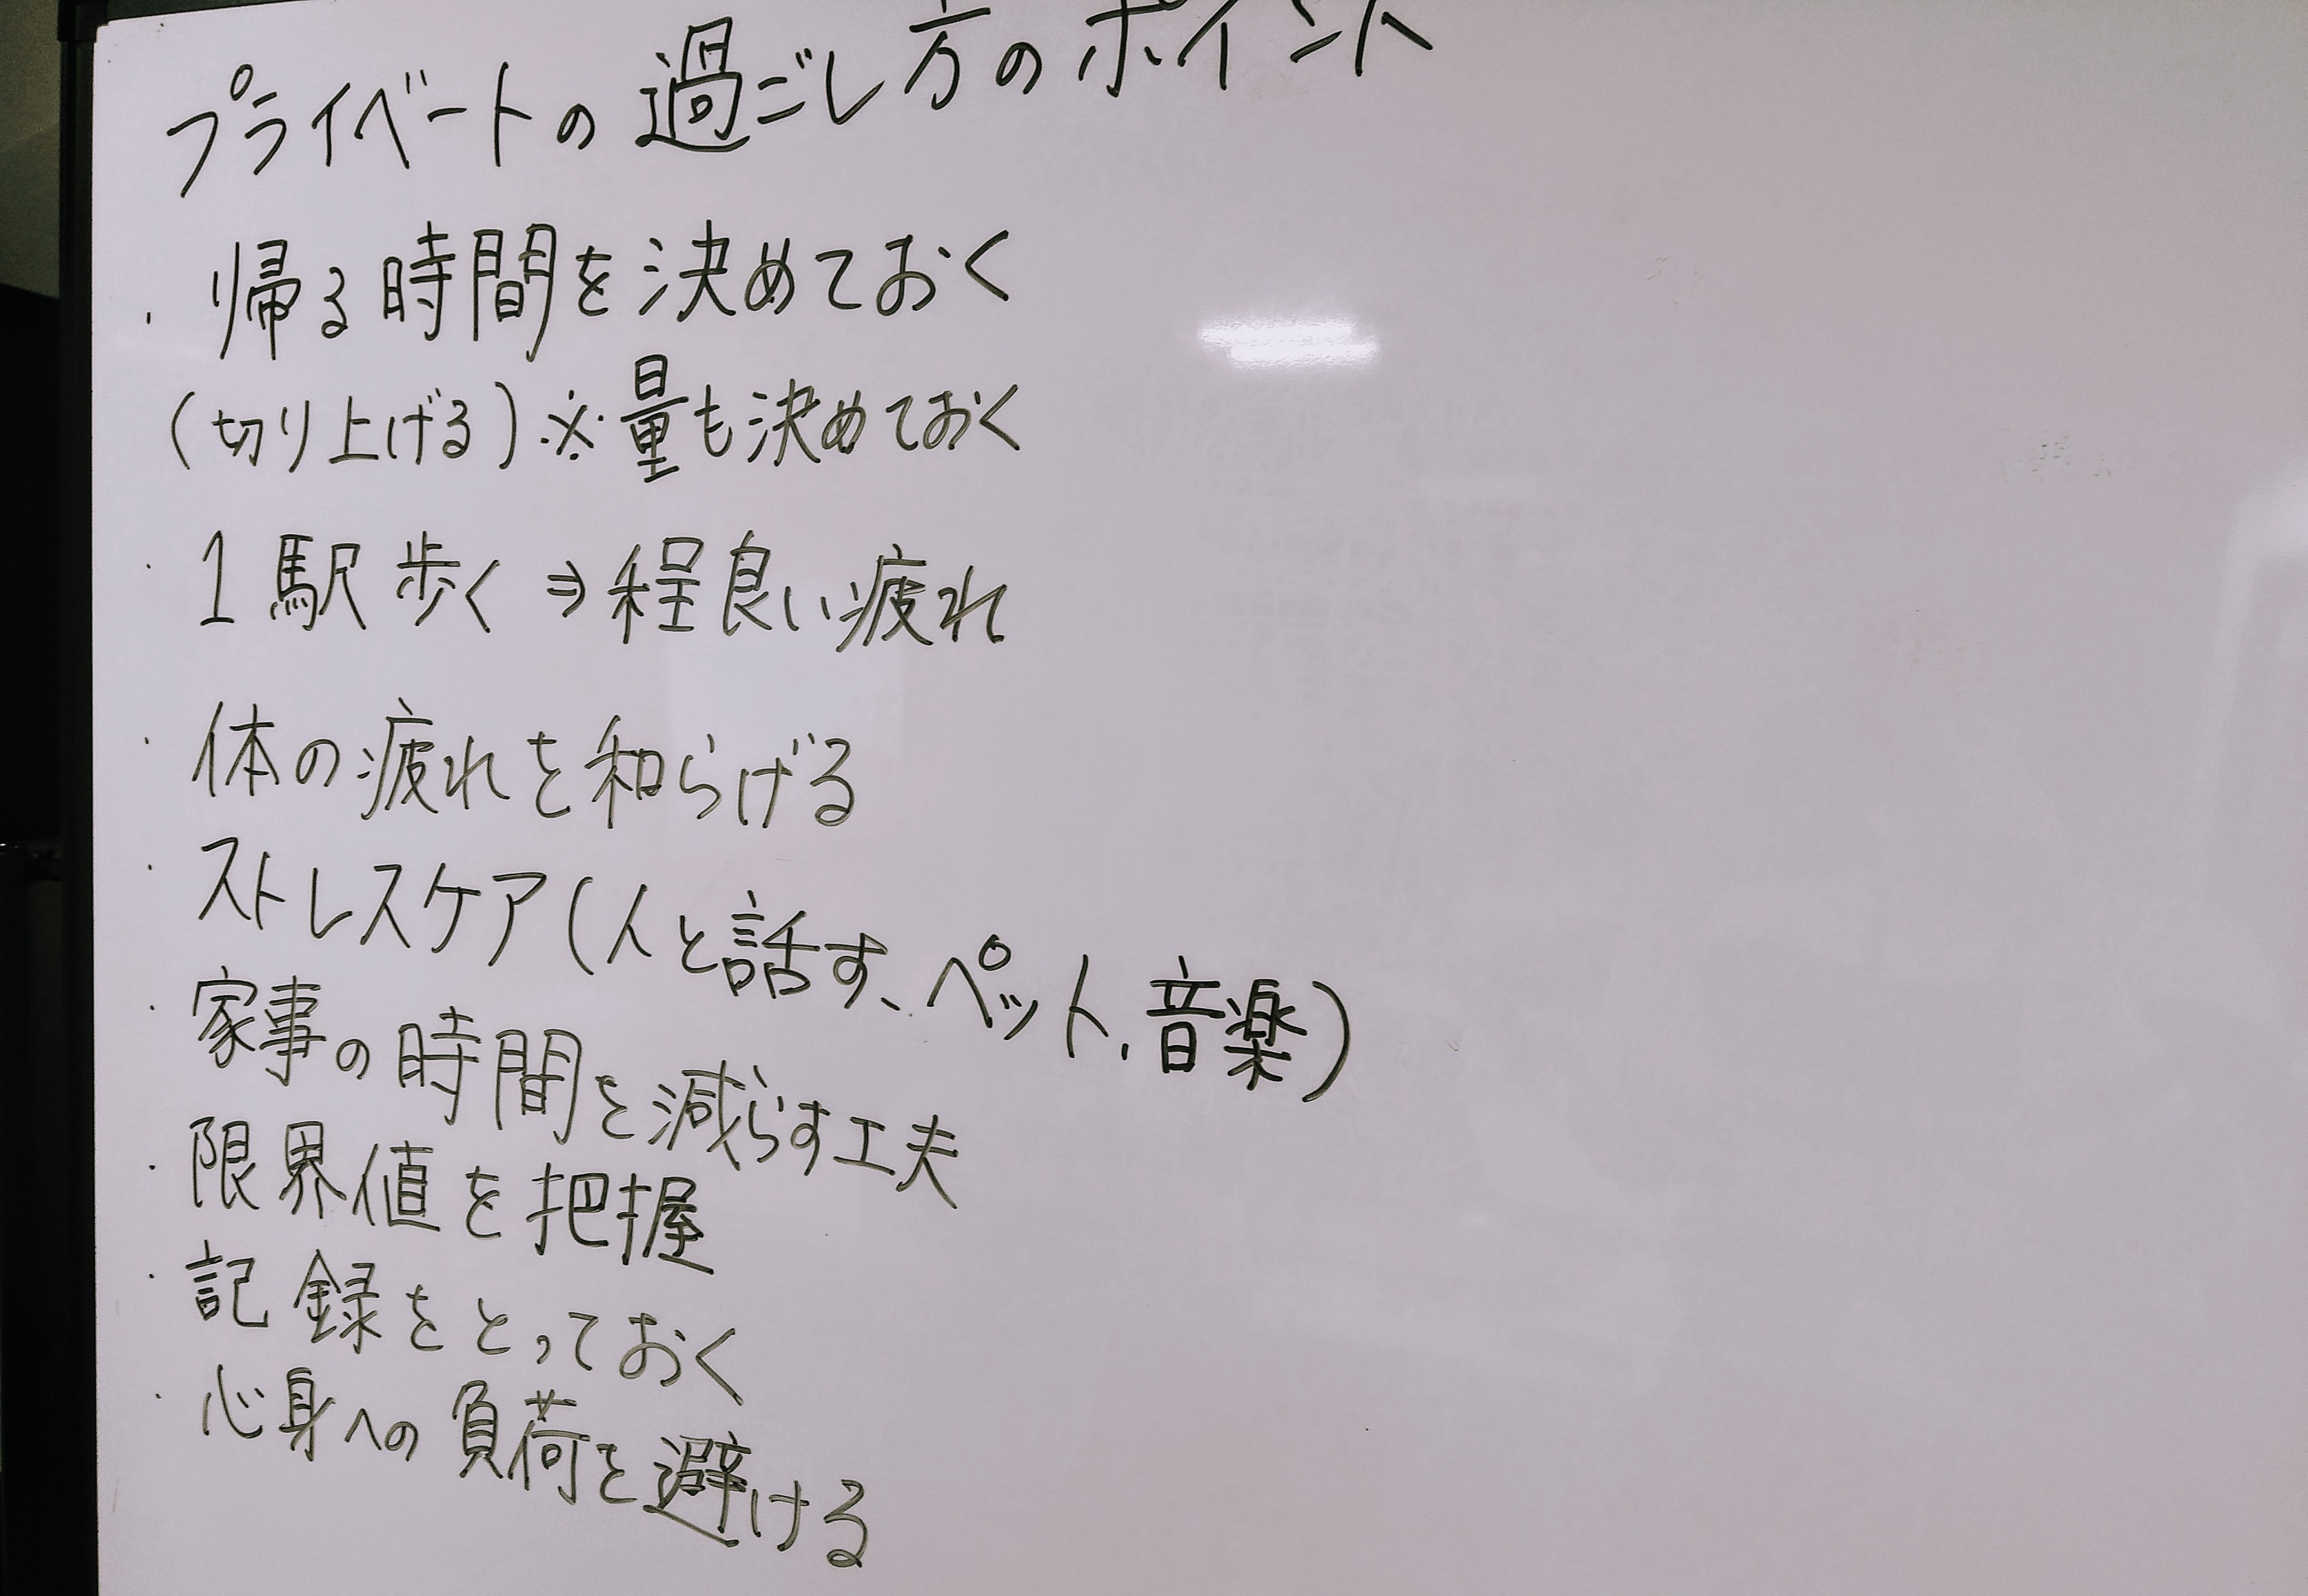 プライベートの過ごし方のポイント
・帰る時間を決めておく
(切り上げる)※量も決めておく
・1駅歩く⇒程良い疲れ
・体の疲れを和らげる
・ストレスケア(人と話す、ペット、音楽)
・家事の時間を減らす工夫
・限界値を把握
・記録をとっておく
・心身への負荷を避ける